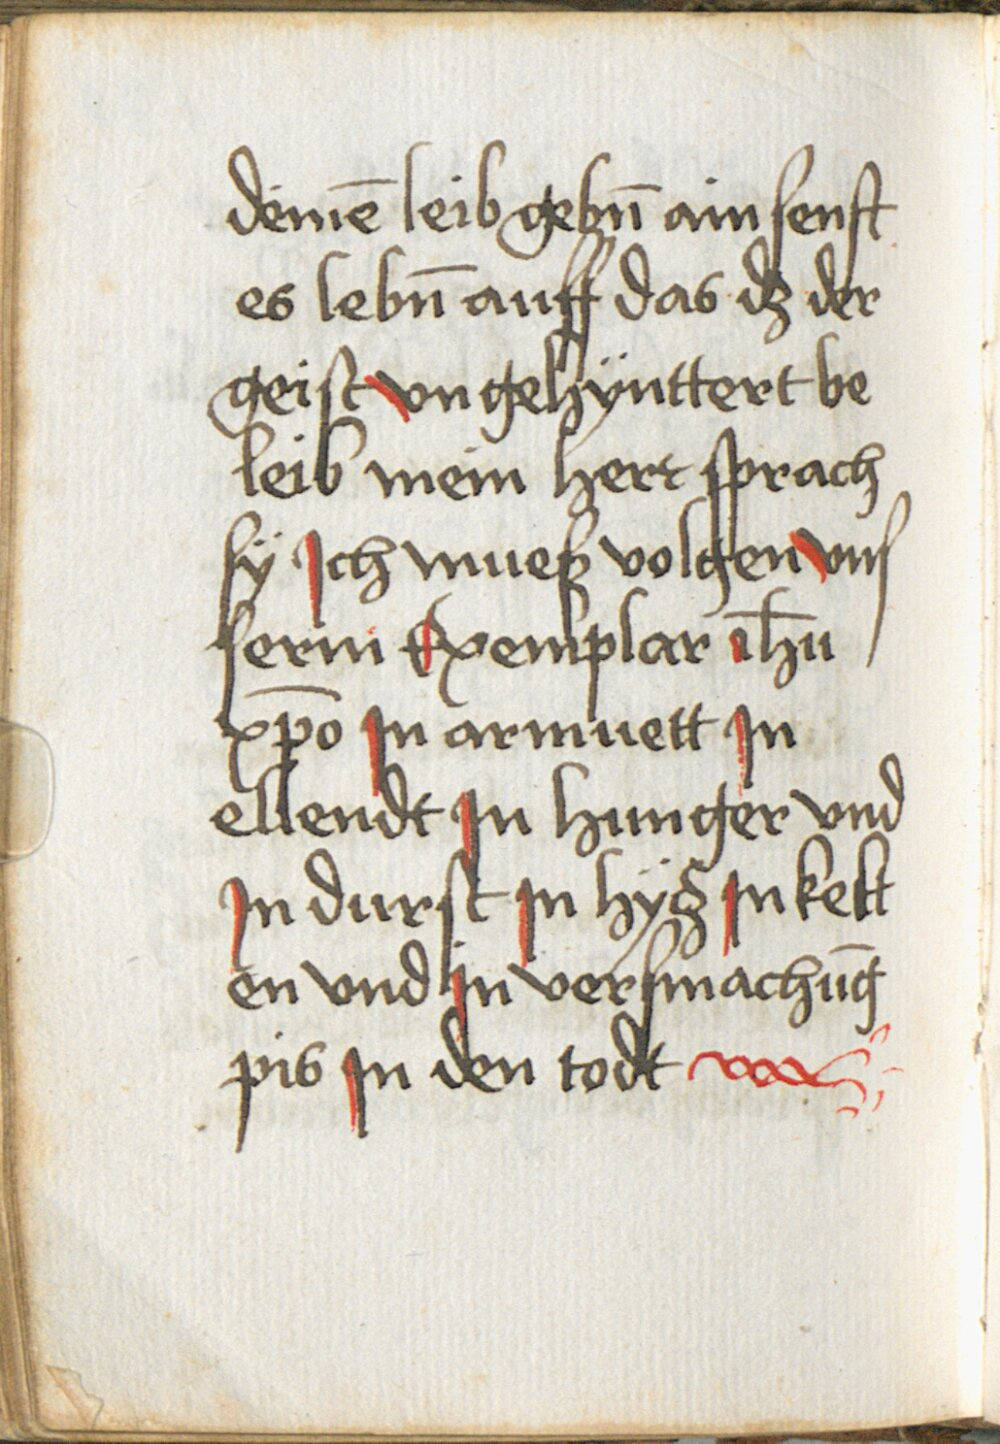 deinē leib gebn̄ ain senft
es lebn̄ auff das dz der
geist vngehÿnttert be
leib mein hert sprach
sÿ Ich mueß volgen vns
serm Exemplar ih̄u
xp̄o In armuett In
ellendt In hunger vnd
In durst In hÿtz In kelt
en vnd In versmachūg
pis In den todt